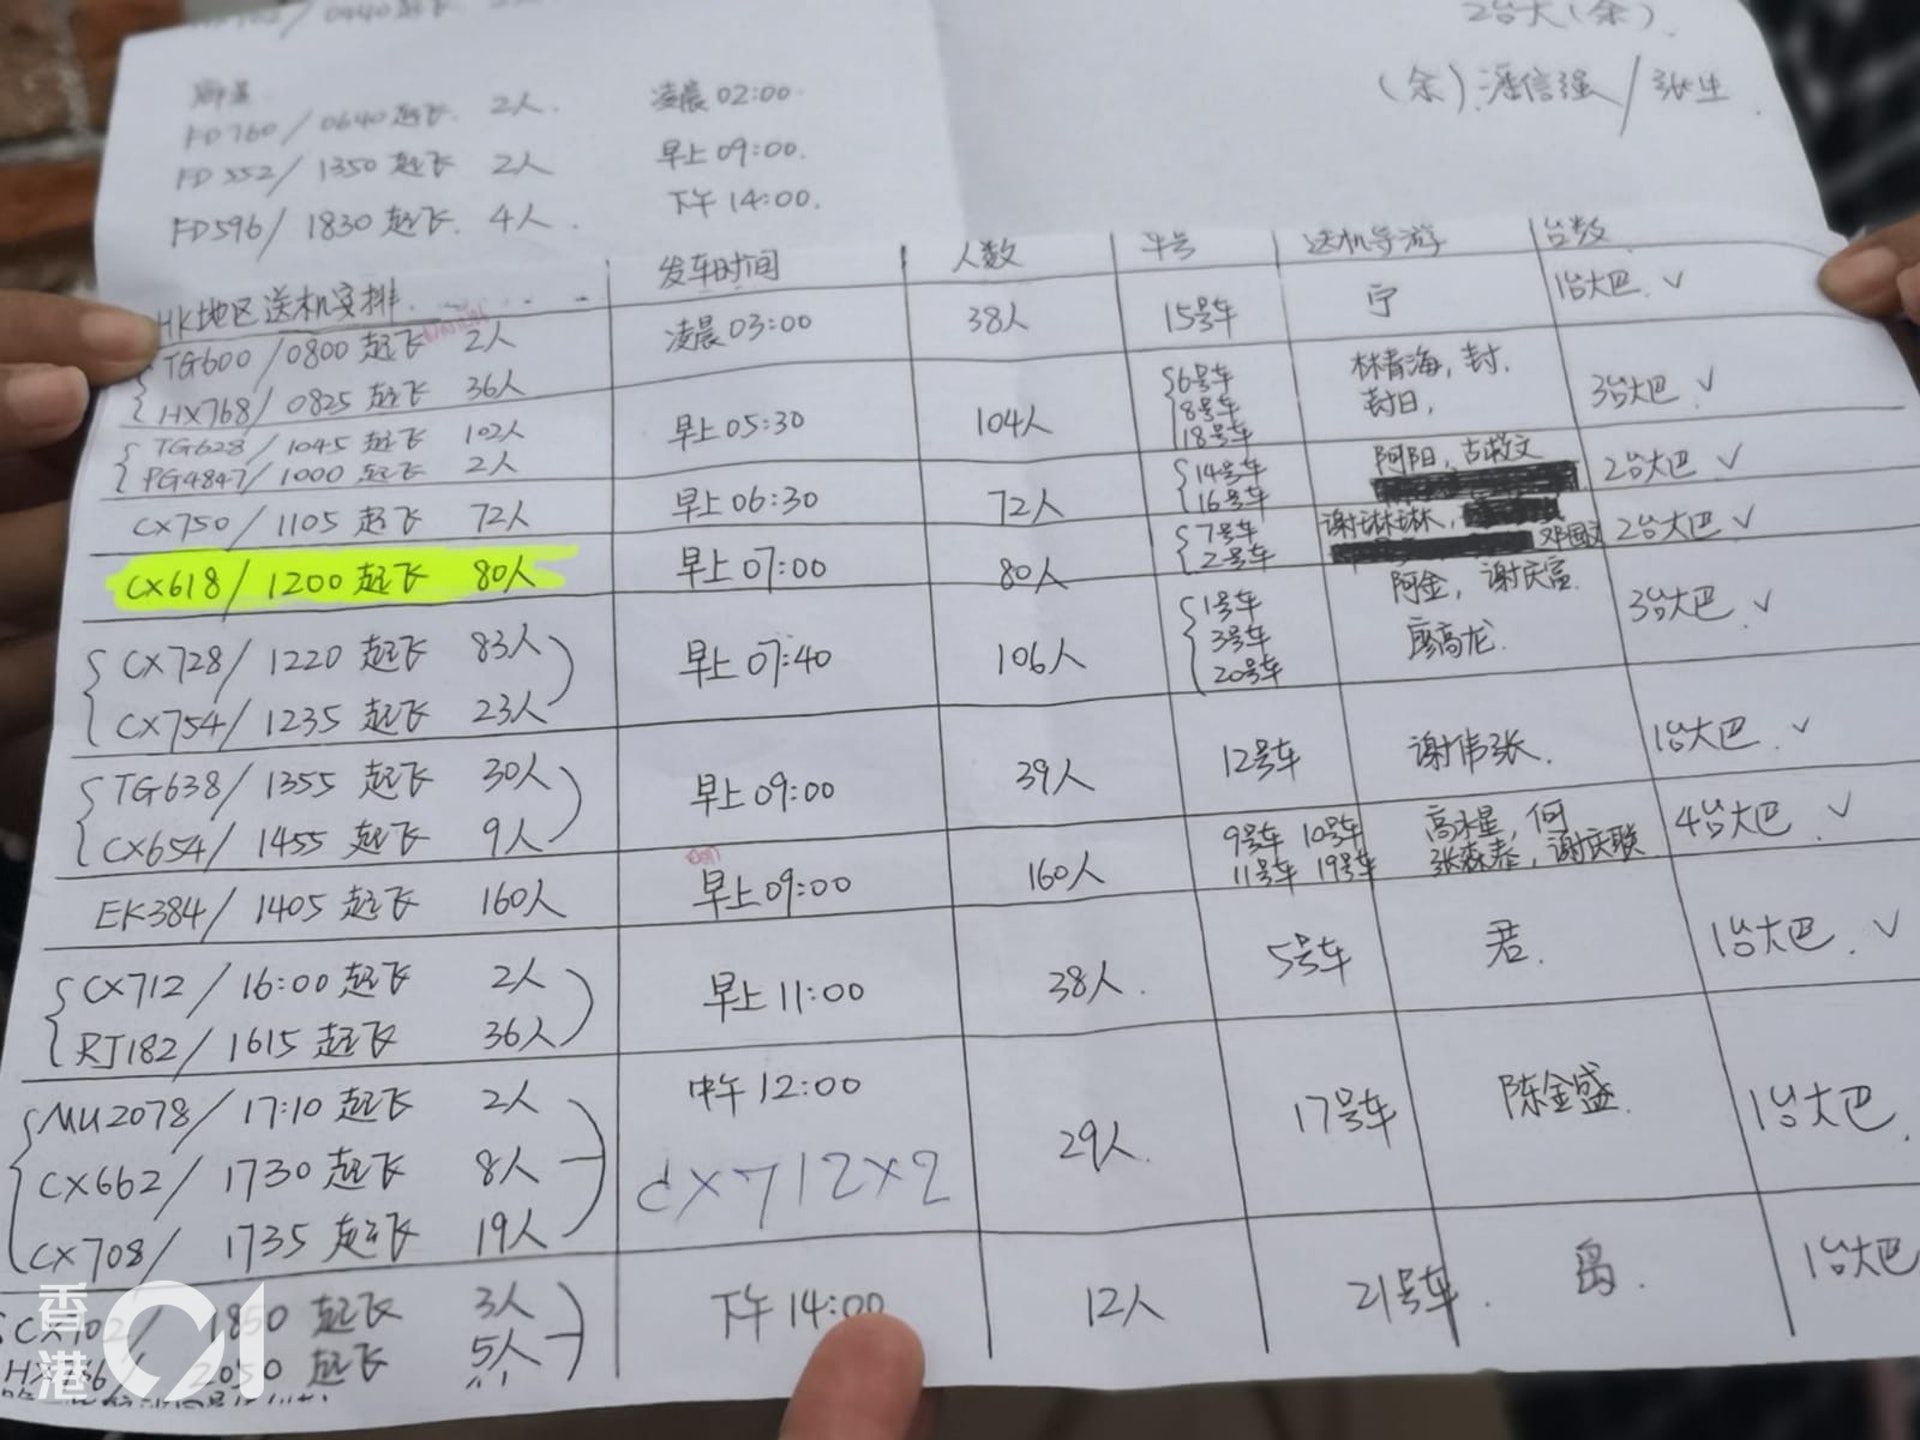 2台大(余).
(余).潘信强/张生
FD760/0640起飞. 2人. 凌晨02:00.
FD552/1350起飞 2人 早上09:00.
FD596/1830起飞. 4人. 下午14:00.
HK地区送机安排. 发车时间 人数 车号 送机导游 台数
TG600/0800起飞 2人 凌晨03:00 38人 15号车 宁 1台大巴. ✓
HX768/0825起飞 36人
TG628/1045起飞 102人 早上05:30 104人 6号车 林青海, 封. 3台大巴. ✓
PG4847/1000起飞 2人 8号车 封日,
18号车
CX750/1105起飞 72人 早上06:30 72人 14号车 阿阳, 2台大巴 ✓
16号车
CX618/1200起飞 80人 早上07:00 80人 7号车 谢琳琳, 2台大巴 ✓
2号车
CX728/1220起飞 83人 早上07:40 106人 1号车 阿金, 谢庆富. 3台大巴 ✓
CX754/1235起飞 23人 3号车 廖高龙.
20号车
TG638/1355起飞 30人 早上09:00 39人 12号车 谢伟张. 1台大巴. ✓
CX654/1455起飞 9人
EK384/1405起飞 160人 早上09:00 160人 9号车 10号车 高水星, 何 4台大巴 ✓
11号车 19号车 张森泰, 谢庆联
CX712/16:00起飞 2人 早上11:00 38人. 5号车 君. 1台大巴. ✓
RJ182/1615起飞 36人
MU2078/17:10起飞 2人 中午12:00 29人. 17号车 陈金盛. 1台大巴.
CX662/1730起飞 8人 CX712x2
CX708/1735起飞 19人
CX702/1850起飞 3人 下午14:00 12人 21号车. 1台大巴
2050起飞 5人
香港01